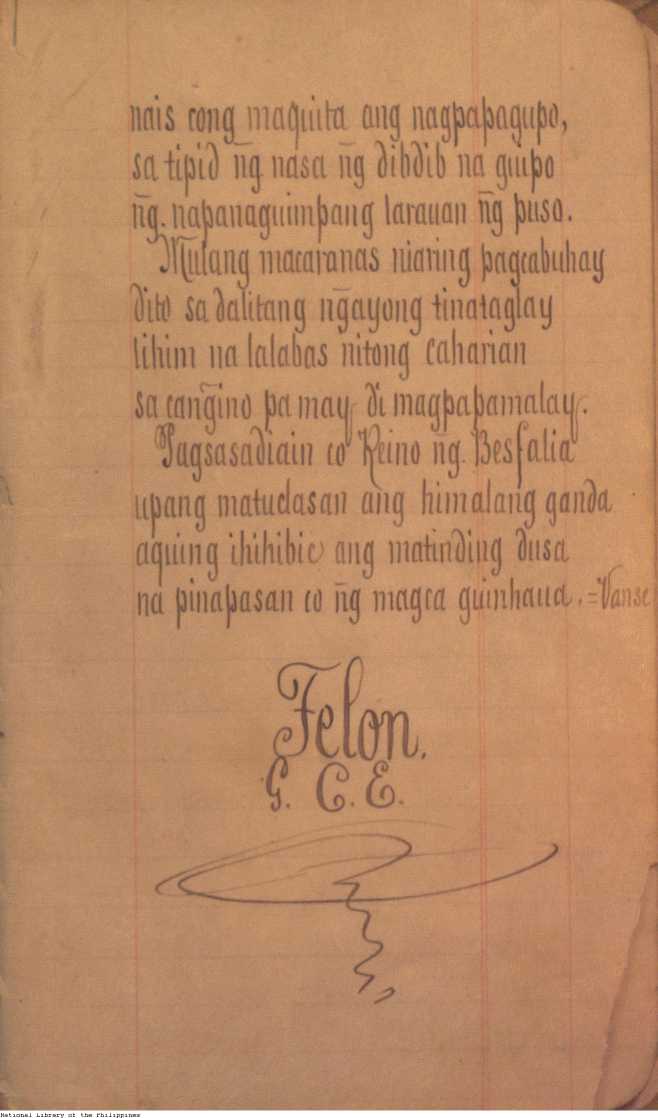 nais cong maquita ang nagpapagupo,
sa tipid n̄g nasa n̄g dibdib na guipo
n̄g. napanaguimpang larauan n̄g puso.
Mulang macaranas niaring pagcabuhay
dito sa dalitang n̄gayong tinataglay
lihim na lalabas nitong Caharian
sa can̄gino pa may di magpapamalay.
Pagsasadiain co Reino n̄g. Besfalia
upang matuclasan ang himalang ganda
aquing ihihibic ang matinding dusa
na pinapasan co n̄g magca guinhaua. =Vanse
Felon.
G. C. E.
National Library of the Philippines